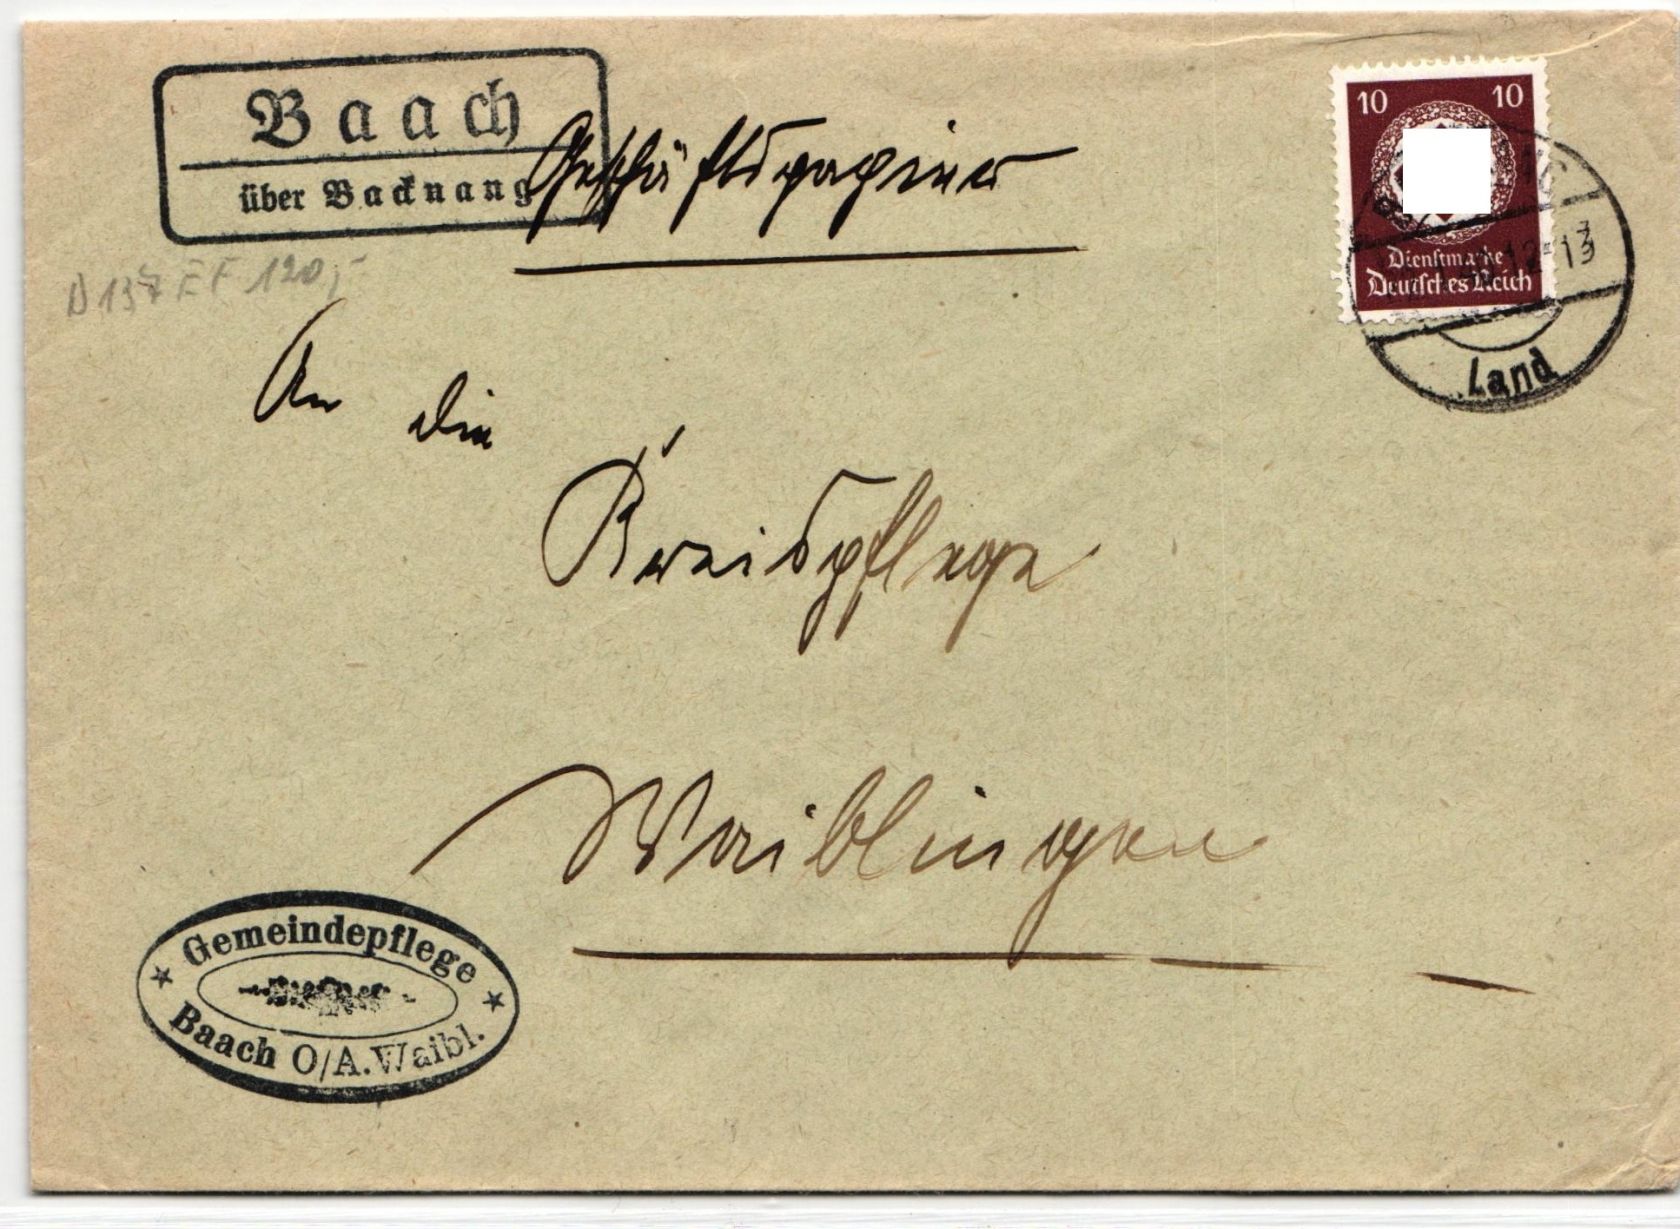 Baach
über Backnang
Geschäftspapiere
D 137 EF 120,-
An die
Kreispflege
Waiblingen
10 10
Dienstmarke
Deutsches Reich
Land
Gemeindepflege
Baach O/A. Waibl.